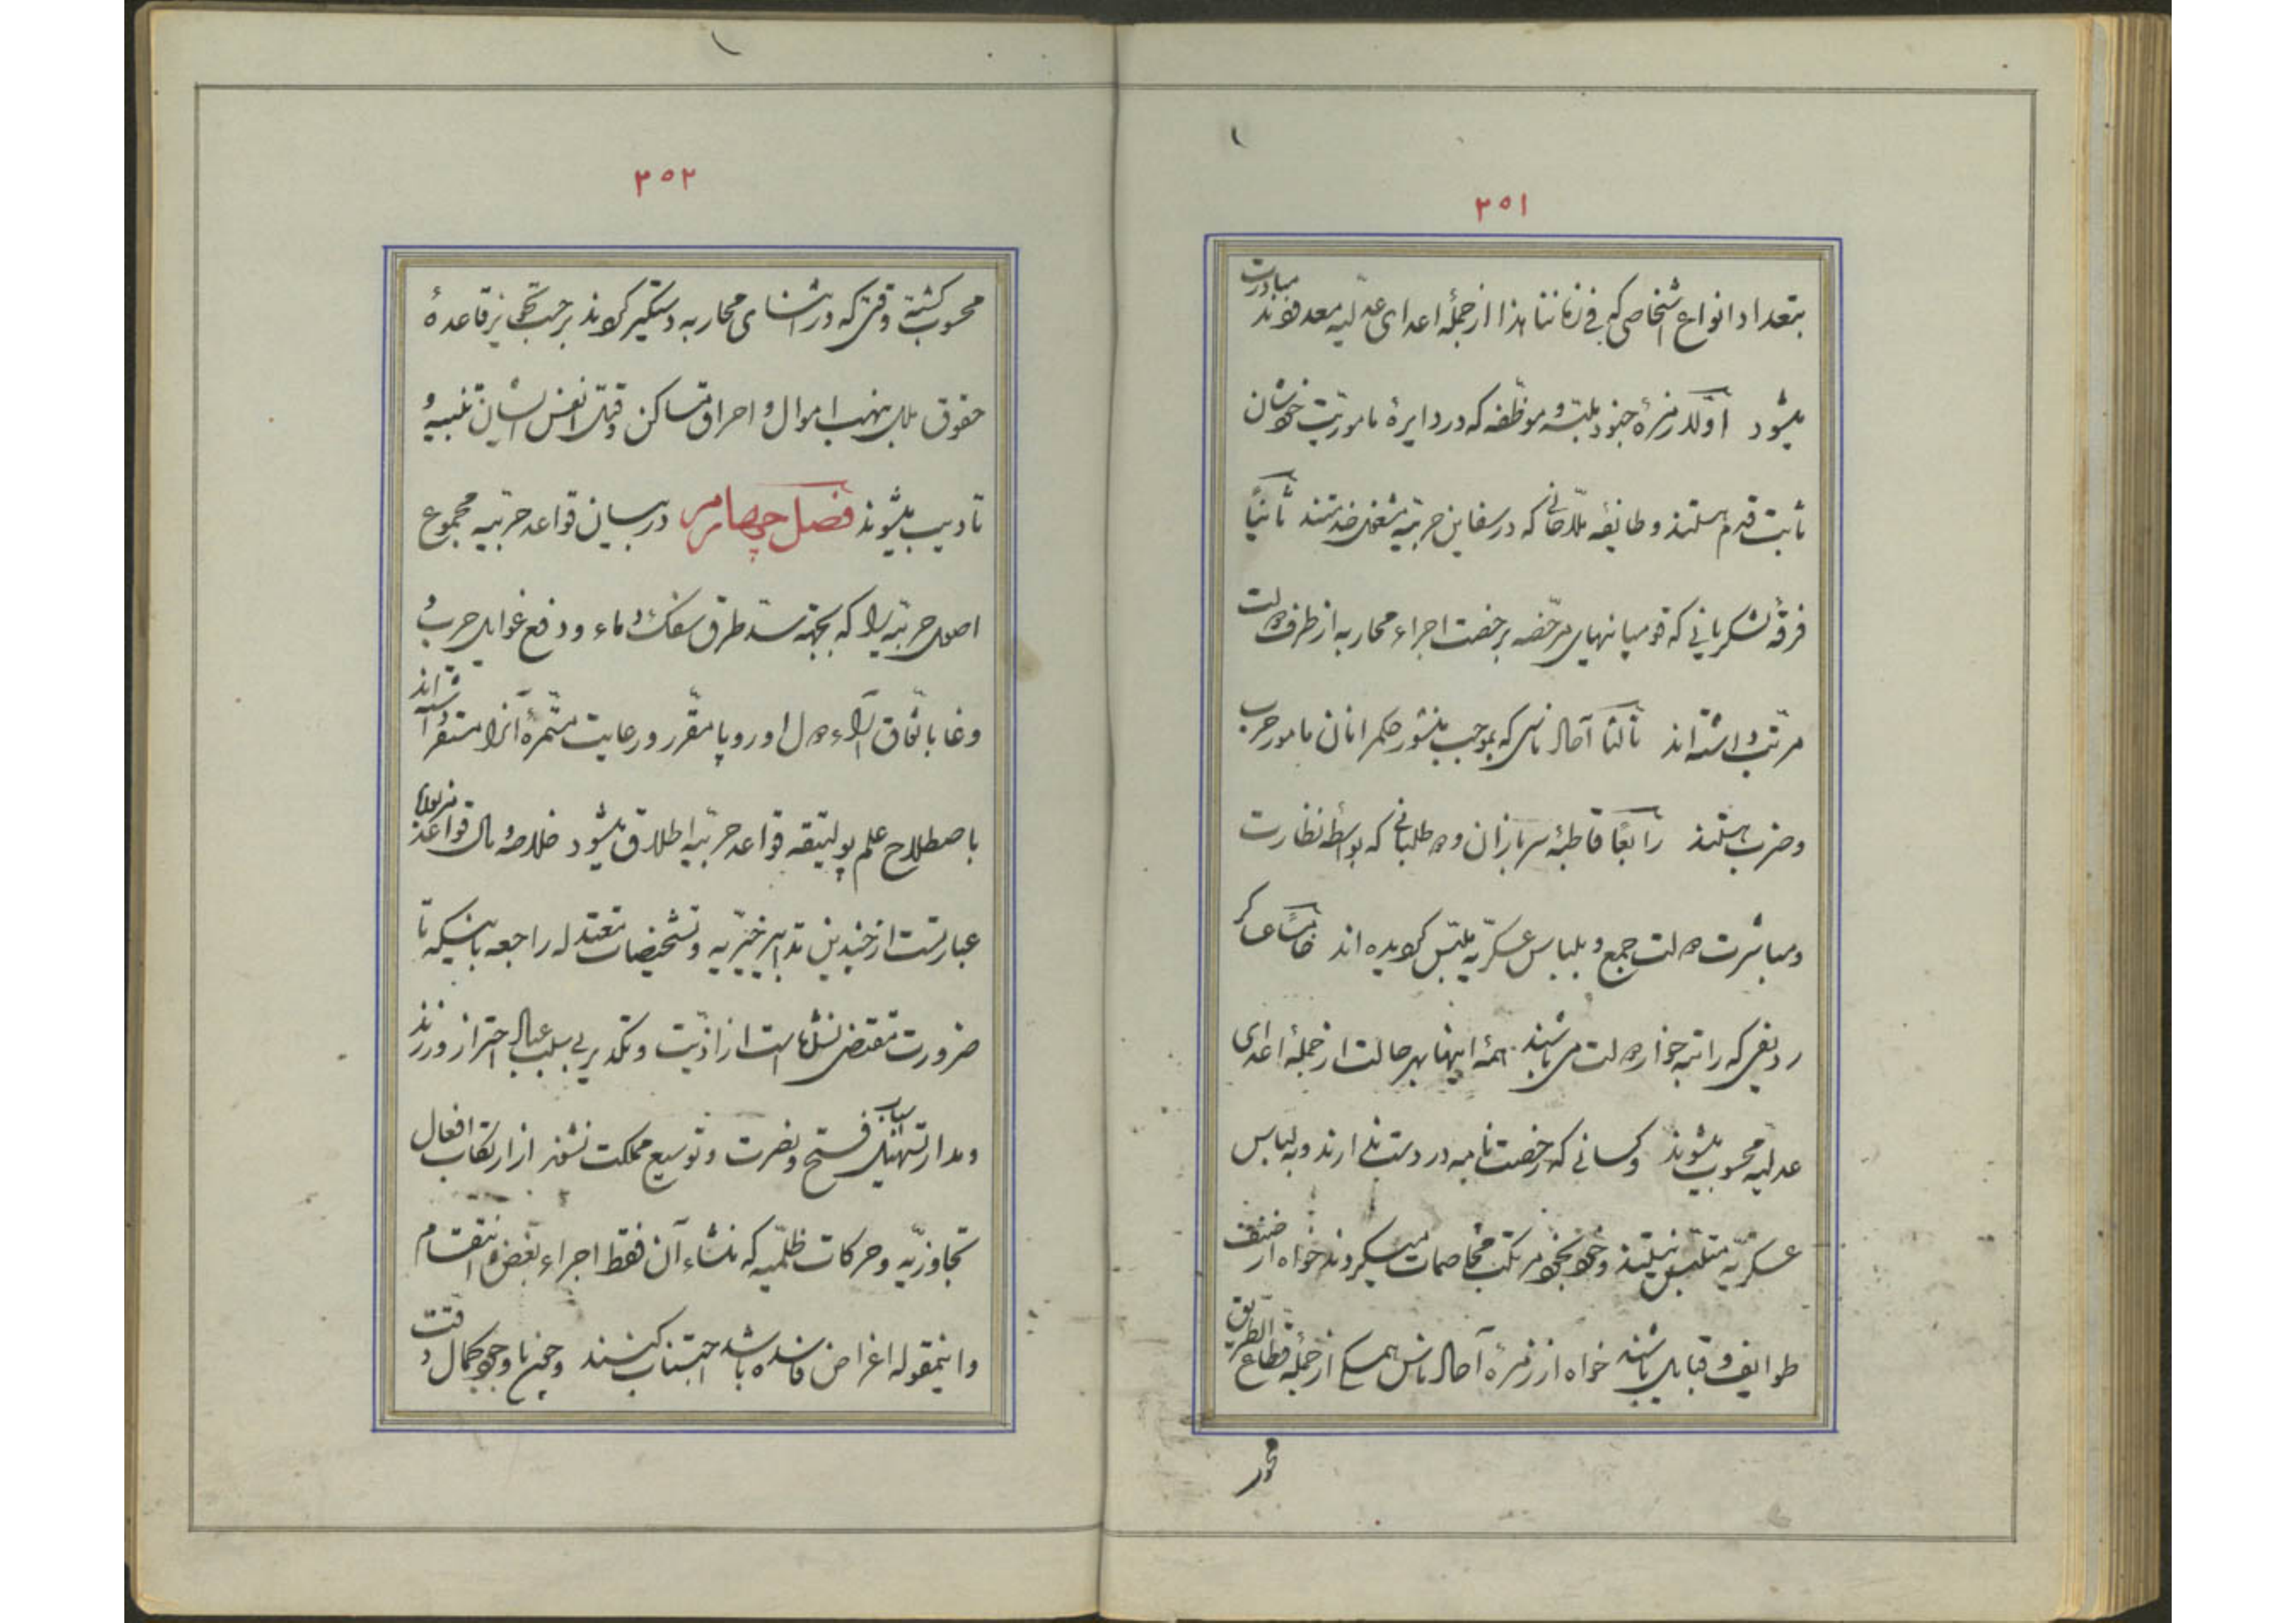 ۲۵۱
بتعداد انواع اشخاصی که فی زماننا هذا از جملهٔ اعدای عدلیه معدودند مبادرت
میشود اوّلا زمرهٔ جنود ملبّسه و موظّفه که در دایرهٔ ماموریت خودشان
ثابت قدم هستند و طایفه ملّاحانی که در سفاین حربیّه مشغول خدمتند ثانیاً
فرقهٔ لشکریانی که قومپانیهای مرخّصه برخصت اجراء محاربه از طرف دولت
مرتّب داشته‌اند ثالثاً آحاد ناسی که بموجب منشور حکمرانان مامور حرب
و ضرب هستند رابعاً قاطبهٔ سربازان و داوطلبانی که بواسطه نظارت
و مباشرت دولت جمع و بلباس عسکریّه ملبّس گردیده اند خامساً عساکر
ردیفی که راتبه خوار دولت می باشند همهٔ اینها بهر حالت از جملهٔ اعدای
عدلیه محسوب میشوند و کسانی که رخصت نامه در دست ندارند و به لباس
عسکریّه متلبّس نیستند و خود بخود مرتکب مخاصمات میگردند خواه از صنف
طوایف و قبایل باشند خواه از زمرهٔ آحاد ناس همگی از جمله قطاع الطریق
محسوب
۲۵۲
محسوب گشته وقتی که در اثنای محاربه دستگیر گردند بر حسب قاعدهٔ
حقوق ملل بنهب اموال و احراق مساکن و قتل انفس ایشان تنبیه و
تادیب میشوند فصل چهارم در بیان قواعد حربیّه مجموع
اصول حربیّه را که بجهة سدّ طرق سفک دماء و دفع غوایل حرب و
وغا باتّفاق آراء دول اوروپا مقرّر و رعایت مثمرهٔ آنرا مستقرّ داشته اند
باصطلاح علم پولیتیقه قواعد حربیّه اطلاق میشود خلاصهٔ مآل قواعد مزبوره
عبارتست از چندین تدابیر خیریّه و تشخیصات معتدله راجعه باینکه تا
ضرورت مقتضی نشده است از اذیّت و تکدیر بی سبب عباد احتراز ورزند
و مدار تسهیل اسباب فتح و نصرت و توسیع مملکت نشود از ارتکاب افعال
تجاوزیّه و حرکات ظلمیّه که منشاء آن فقط اجراء بغض و انتقام
و اینمقوله اغراض فاسده باشد اجتناب کنند و چنین با وجود کمال دقت